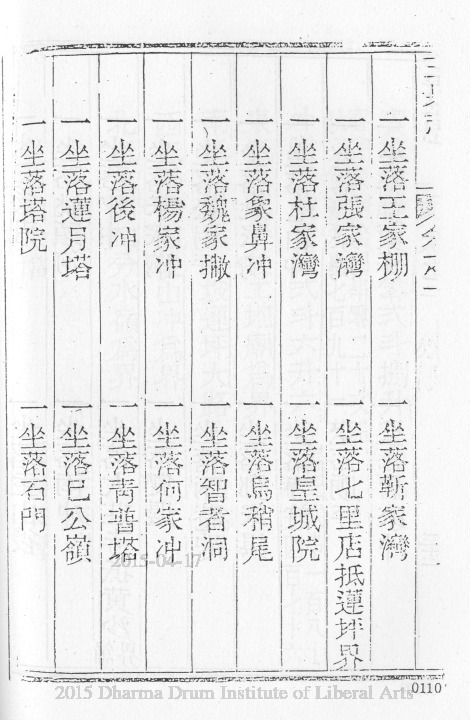 一坐落王家棚
一坐落靳家灣
一坐落張家灣
一坐落七里店抵蓮坪界
一坐落杜家灣
一坐落皇城院
一坐落象鼻冲
一坐落烏稍尾
一坐落魏家撇
一坐落智者洞
一坐落楊家冲
一坐落何家冲
一坐落後冲
一坐落靑普塔
一坐落蓮月塔
一坐落巳公嶺
一坐落塔院
一坐落石門
2015-04-17
0110
2015 Dharma Drum Institute of Liberal Arts